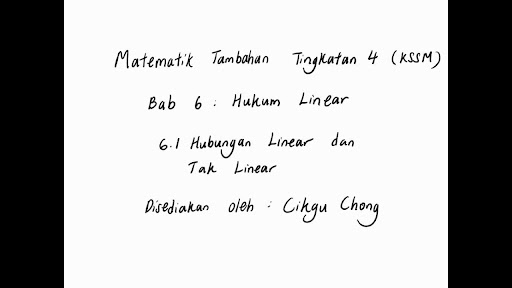 Matematik Tambahan Tingkatan 4 (KSSM)
Bab 6 : Hukum Linear
6.1 Hubungan Linear dan
Tak Linear
Disediakan oleh : Cikgu Chong